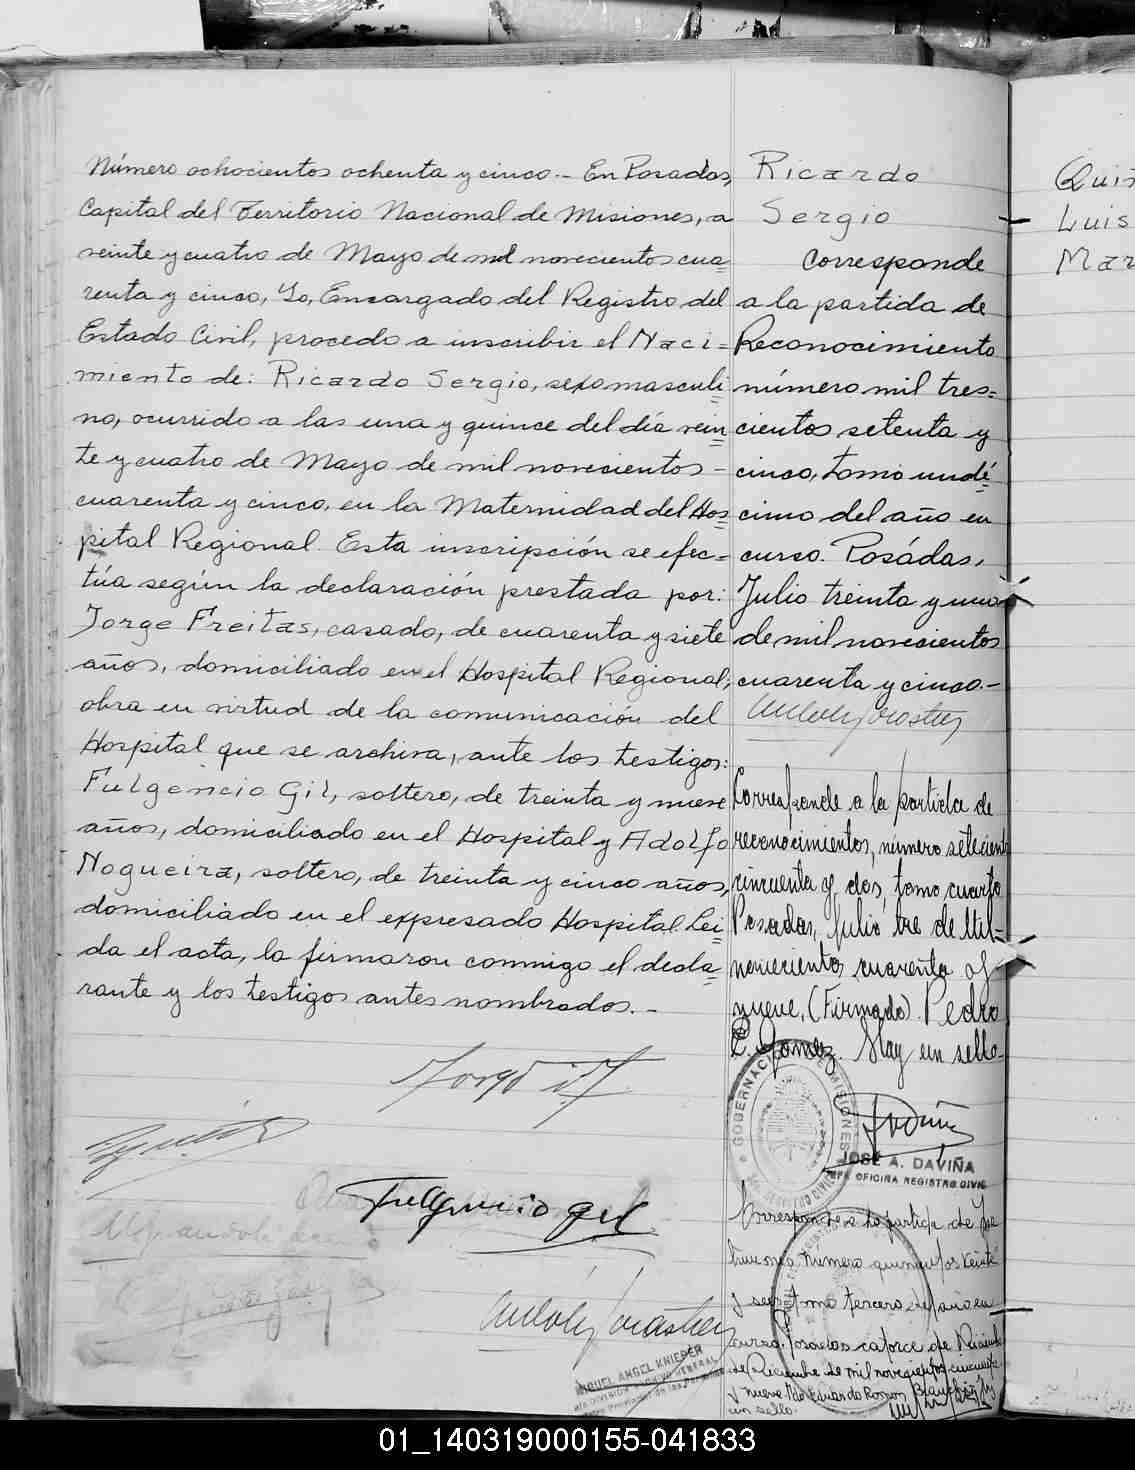 Número ochocientos ochenta y cinco.- En Posadas,
Capital del Territorio Nacional de Misiones, a
veinte y cuatro de Mayo de mil novecientos cua=
renta y cinco, Yo, Encargado del Registro del
Estado Civil, procedo a inscribir el Naci=
miento de: Ricardo Sergio, sexo masculi=
no, ocurrido a las una y quince del día vein=
te y cuatro de Mayo de mil novecientos -
cuarenta y cinco, en la Maternidad del Hos=
pital Regional. Esta inscripción se efec=
túa según la declaración prestada por:
Jorge Freitas, casado, de cuarenta y siete
años, domiciliado en el Hospital Regional,
obra en virtud de la comunicación del
Hospital que se archiva, ante los testigos:
Fulgencio Gil, soltero, de treinta y nueve
años, domiciliado en el Hospital y Adolfo
Nogueira, soltero, de treinta y cinco años,
domiciliado en el expresado Hospital. Lei=
da el acta, la firmaron conmigo el decla=
rante y los testigos antes nombrados.-
Fulgencio Gil
MIGUEL ANGEL KNIEPER
Ricardo
Sergio
Corresponde
a la partida de
Reconocimiento
número mil tres=
cientos setenta y
cinco, tomo undé=
cimo del año en
curso. Posadas,
Julio treinta y uno
de mil novecientos
cuarenta y cinco.-
Corresponde a la partida de
reconocimientos, número setecient
cincuenta y dos, tomo cuarto
Posadas, Julio tre de Mil-
novecientos cuarenta y
nueve, (Firmado). Pedro
E. Gomez. Hay un sello-
GOBERNACION DE MISIONES
REGISTRO CIVIL
JOSÉ A. DAVIÑA
JEFE OFICINA REGISTRO CIVIL
Corresponde a la partida de
numero quinientos veinte
y seis tomo tercero del año en
curso. Posadas catorce de
de Diciembre de mil novecientos cincuenta
y nueve
un sello.
Luis
Mar
01_140319000155-041833